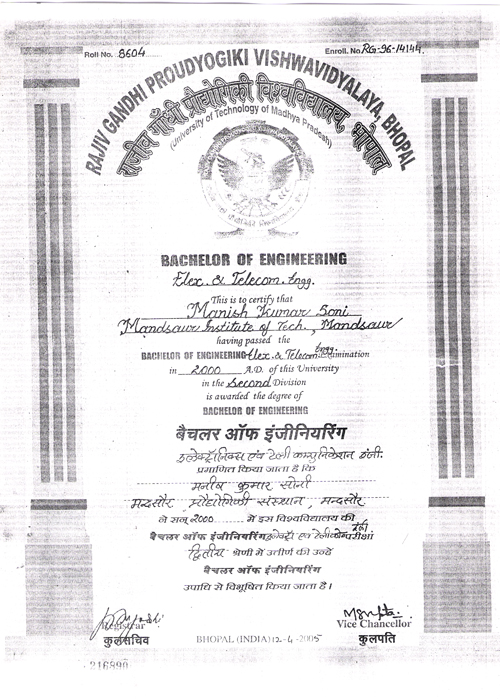 Roll No. 8604
Enroll. No. RG-96-14144.
RAJIV GANDHI PROUDYOGIKI VISHWAVIDYALAYA, BHOPAL
राजीव गाँधी प्रौद्योगिकी विश्वविद्यालय, भोपाल
(University of Technology of Madhya Pradesh)
BACHELOR OF ENGINEERING
Elex. & Telecom. Engg.
This is to certify that
Manish Kumar Soni
Mandsaur Institute of Tech., Mandsaur
having passed the
BACHELOR OF ENGINEERING Elex. & Telecom. Engg. Examination
in 2000 A.D. of this University
in the Second Division
is awarded the degree of
BACHELOR OF ENGINEERING
बैचलर ऑफ इंजीनियरिंग
इलेक्ट्रॉनिक्स एवं टेली कम्युनिकेशन इंजी.
प्रमाणित किया जाता है कि
मनीष कुमार सोनी
मन्दसौर प्रौद्योगिकी संस्थान, मन्दसौर
ने सन् 2000 में इस विश्वविद्यालय की
बैचलर ऑफ इंजीनियरिंग एवं परीक्षा
द्वितीय श्रेणी में उत्तीर्ण की उन्हें
बैचलर ऑफ इंजीनियरिंग
उपाधि से विभूषित किया जाता है।
Registrar
कुलसचिव
BHOPAL (INDIA) 12-4-2005
Vice Chancellor
कुलपति
216890